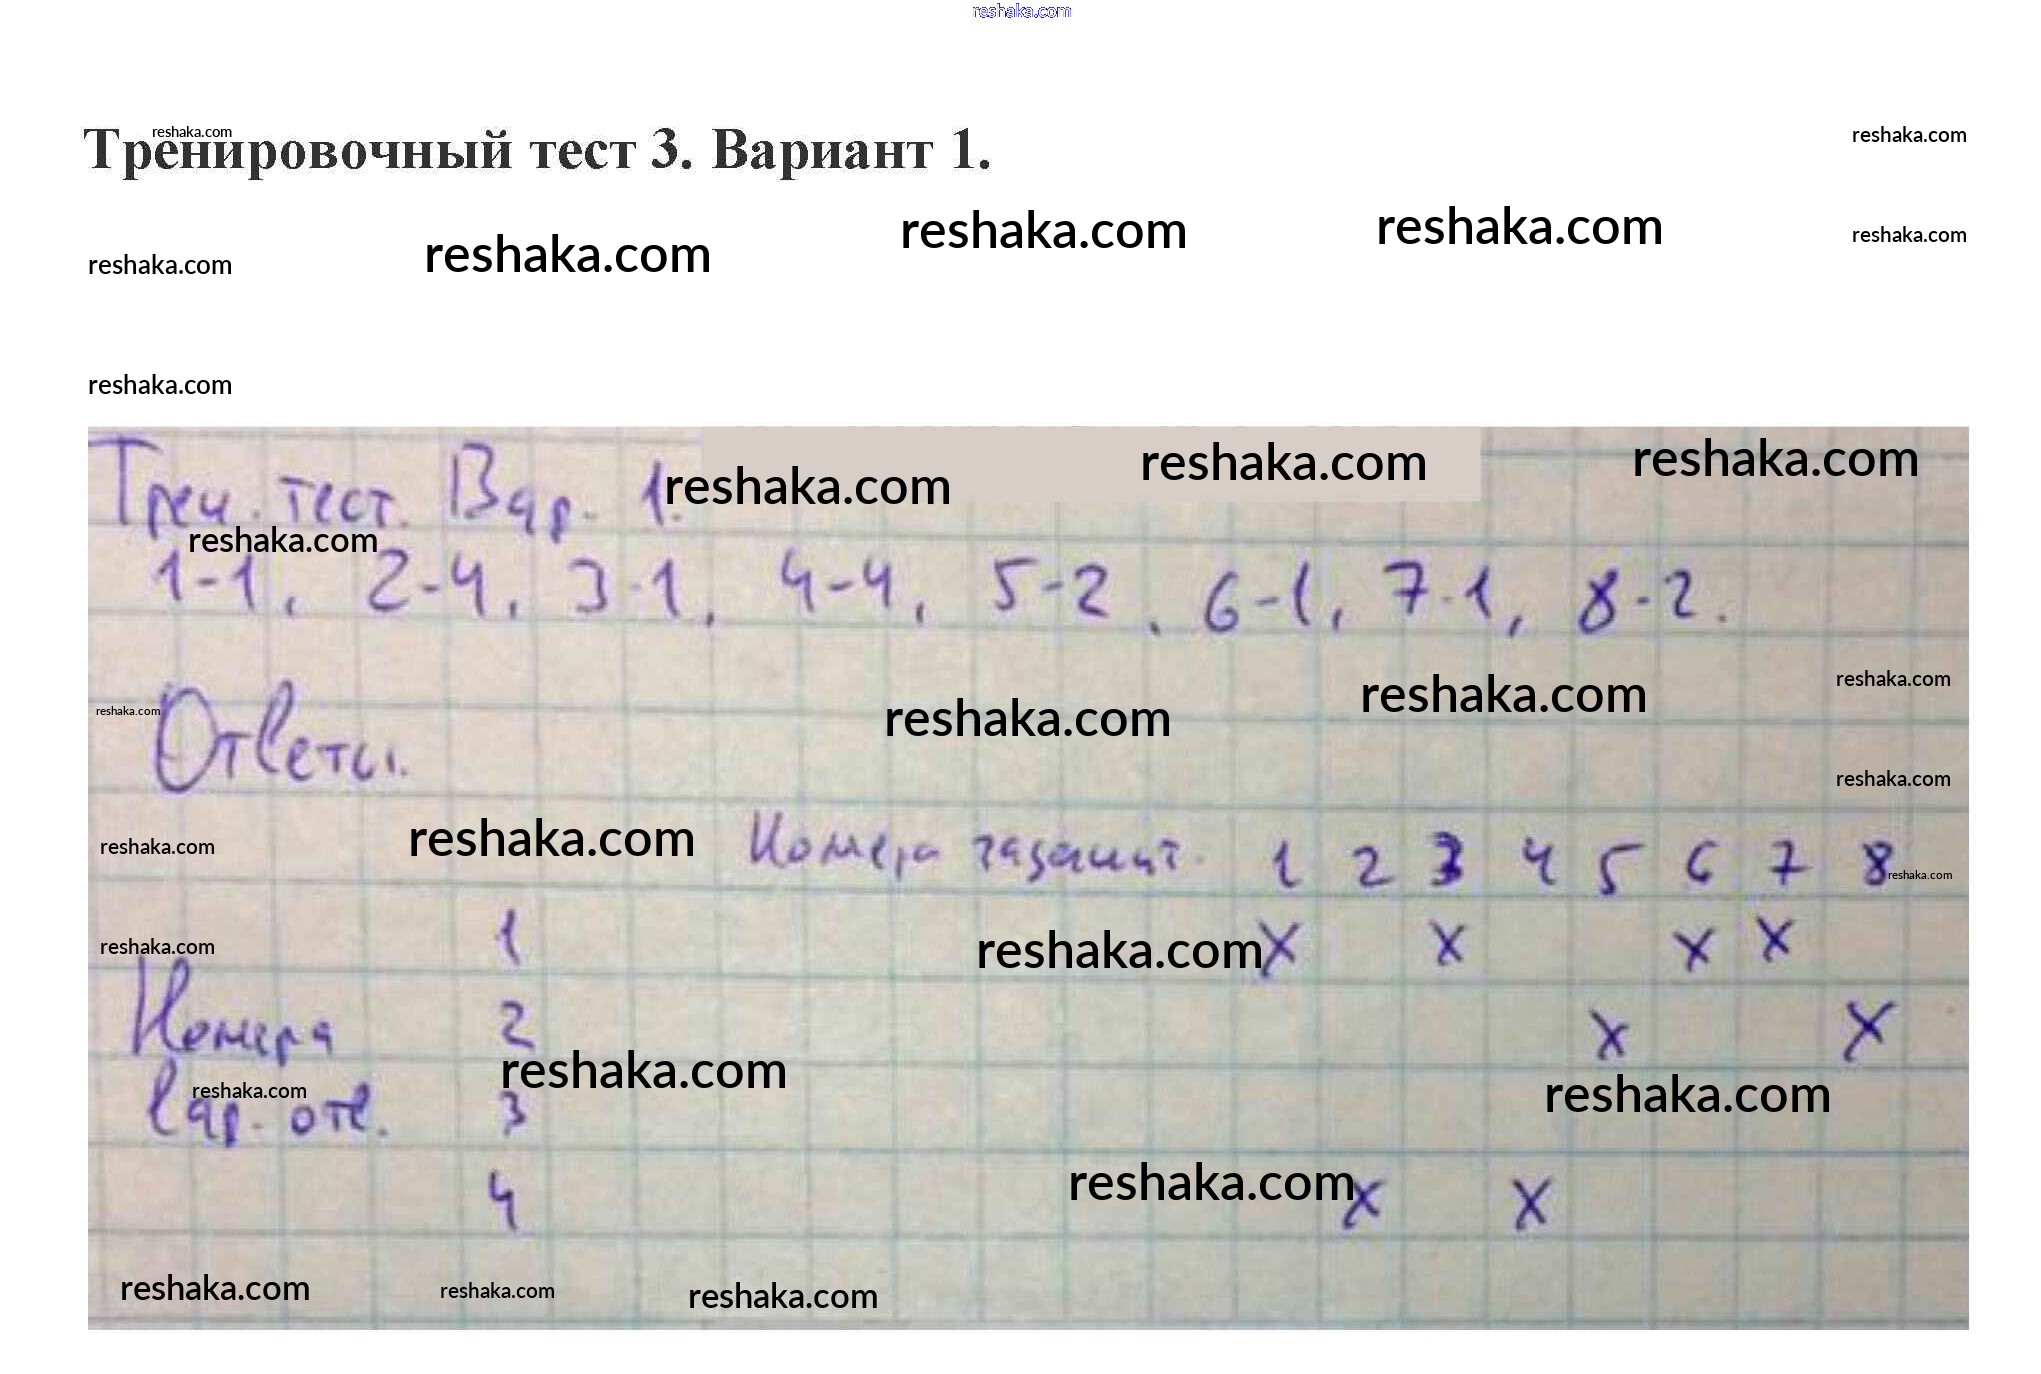 reshaka.com
Тренировочный тест 3. Вариант 1.
reshaka.com reshaka.com
reshaka.com reshaka.com reshaka.com reshaka.com reshaka.com
reshaka.com
Трен. тест. Вар. 1. reshaka.com reshaka.com reshaka.com
reshaka.com
1-1, 2-4, 3-1, 4-4, 5-2, 6-1, 7-1, 8-2.
reshaka.com reshaka.com reshaka.com
reshaka.com
Ответы.
reshaka.com
reshaka.com reshaka.com Номера заданий. 1 2 3 4 5 6 7 8 reshaka.com
reshaka.com 1 reshaka.com х х х х
Номера 2 х х
reshaka.com reshaka.com reshaka.com
вар. отв. 3
4 reshaka.com х х
reshaka.com reshaka.com reshaka.com